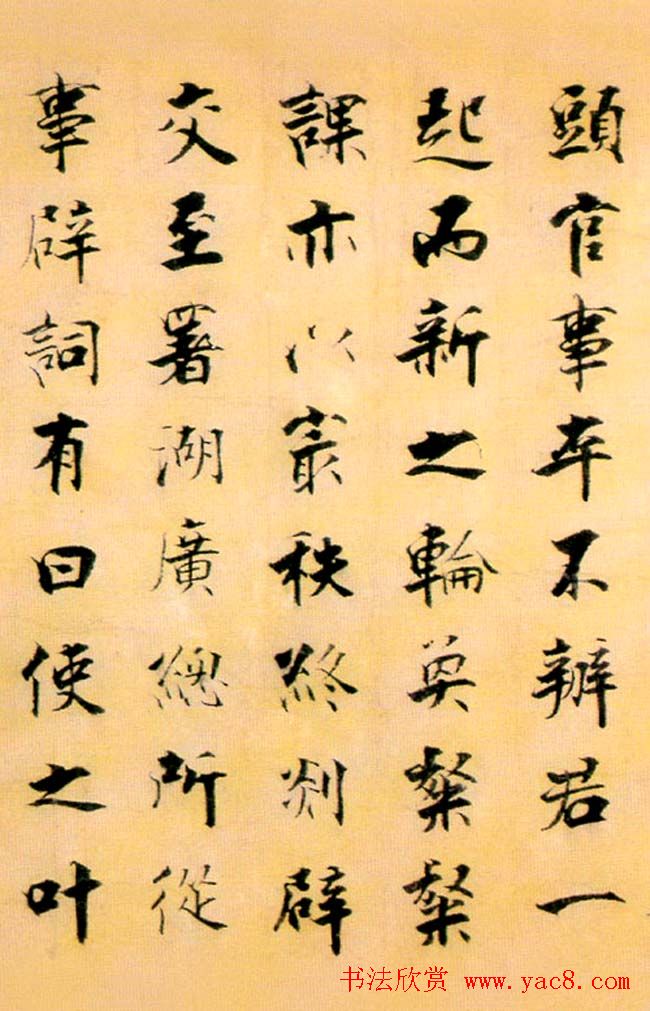 頭官事卒不辦若一
起而新之輪奐粲粲
課亦以最秩終剡辟
交至署湖廣總所從
事辟詞有曰使之叶
书法欣赏 www.yac8.com